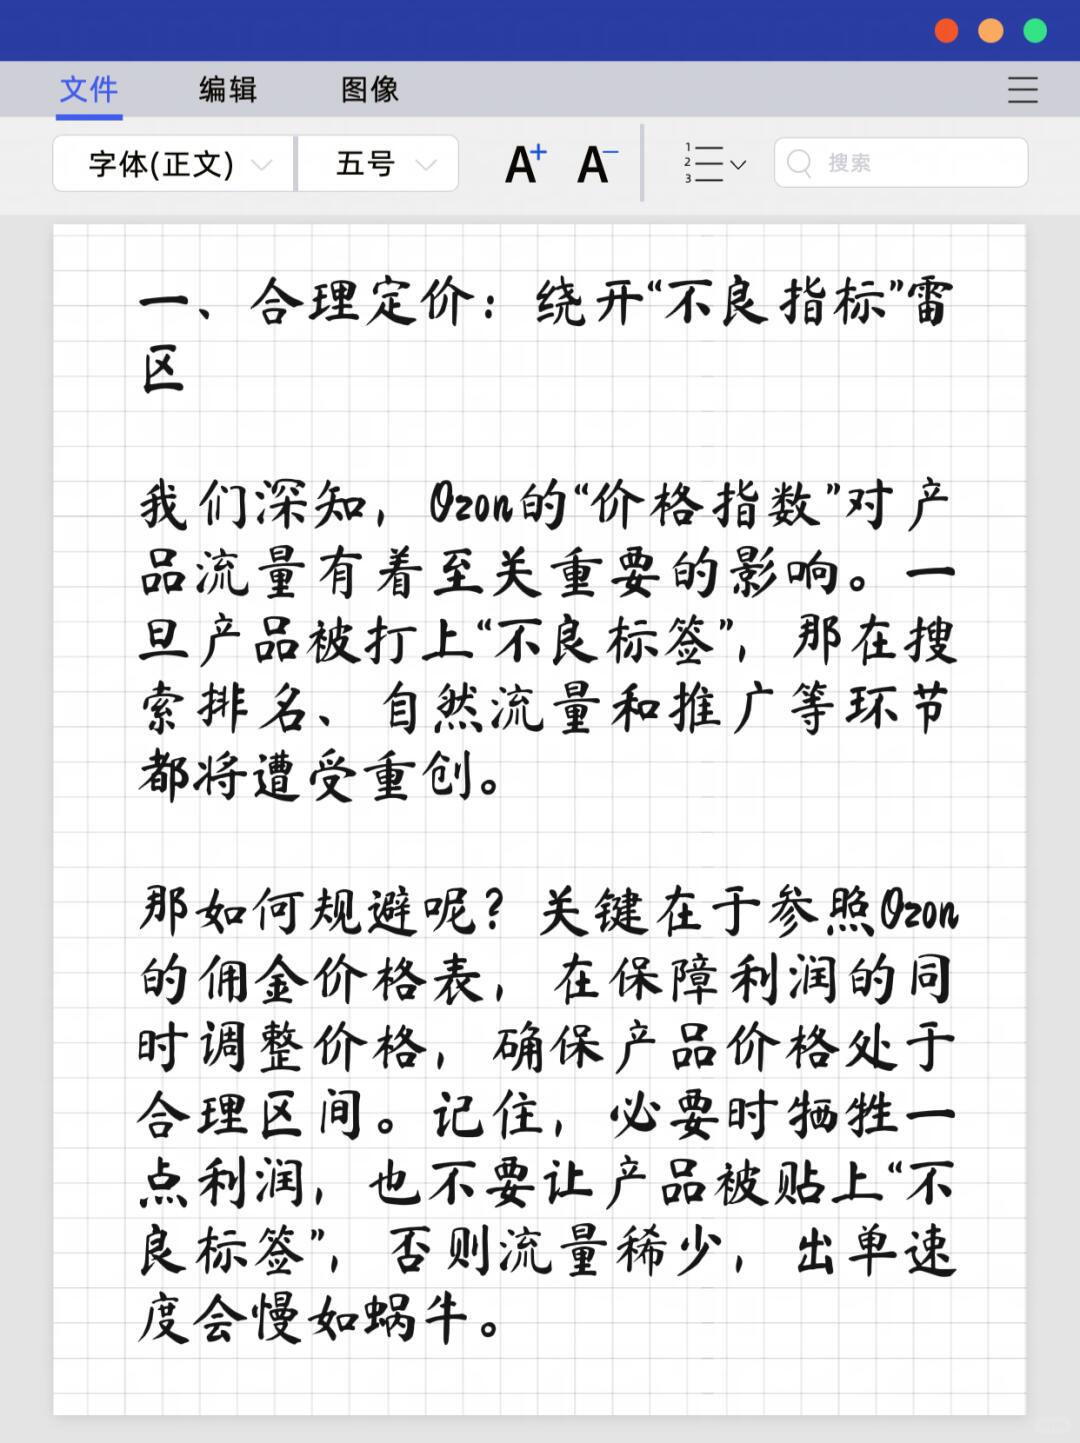 文件 编辑 图像
字体(正文) 五号 A+ A- 1 2 3 搜索
一、合理定价：绕开“不良指标”雷
区
我们深知，Ozon的“价格指数”对产
品流量有着至关重要的影响。一
旦产品被打上“不良标签”，那在搜
索排名、自然流量和推广等环节
都将遭受重创。
那如何规避呢？关键在于参照Ozon
的佣金价格表，在保障利润的同
时调整价格，确保产品价格处于
合理区间。记住，必要时牺牲一
点利润，也不要让产品被贴上“不
良标签”，否则流量稀少，出单速
度会慢如蜗牛。